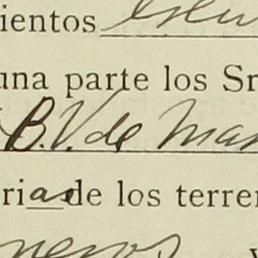 ientos
una parte los Sr
B. V. de Mar
rias de los terre